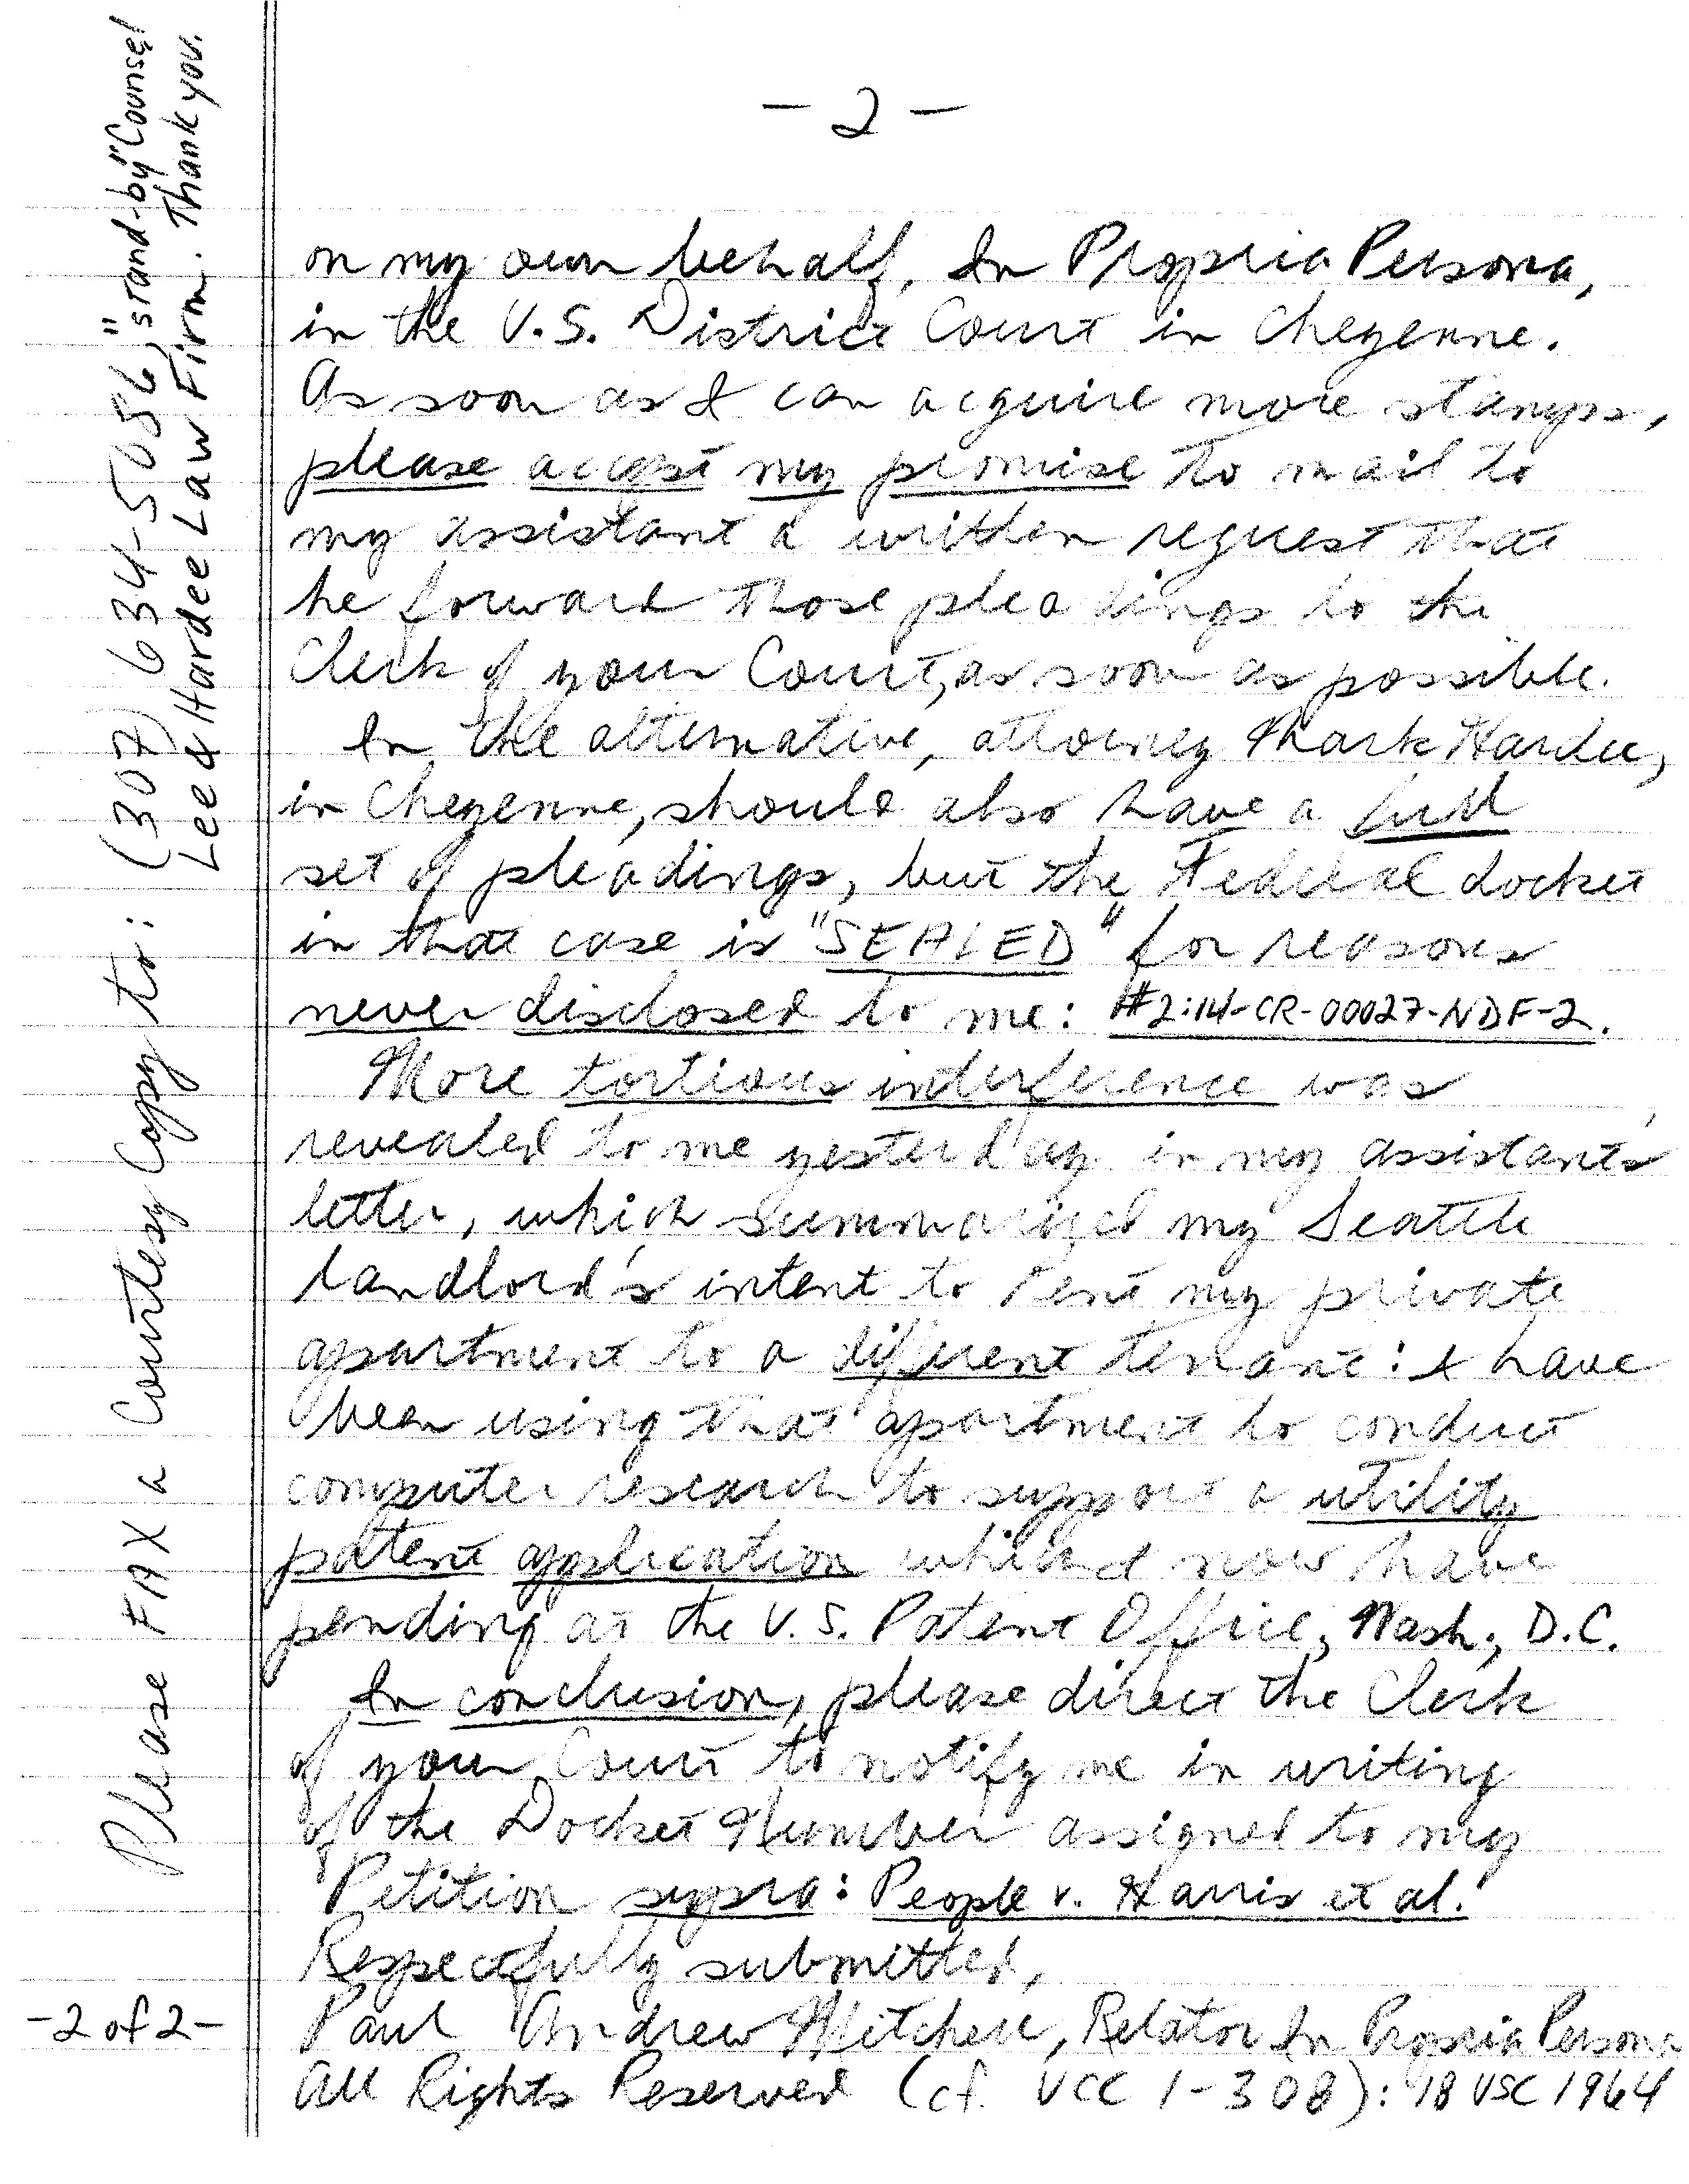 - 2 -
on my own behalf, In Propria Persona,
in the U.S. District Court in Cheyenne.
As soon as I can acquire more stamps,
please accept my promise to mail to
my assistant a written request that
he forward those pleadings to the
Clerk of your Court, as soon as possible.
In the alternative, attorney Mark Hardee,
in Cheyenne, should also have a full
set of pleadings, but the Federal docket
in that case is "SEALED" for reasons
never disclosed to me: #2:14-CR-00027-NDF-2.
More tortious interference was
revealed to me yesterday in my assistant's
letter, which summarized my Seattle
landlord's intent to rent my private
apartment to a different tenant: I have
been using that apartment to conduct
computer research to support a utility
patent application which I now have
pending at the U.S. Patent Office, Wash., D.C.
In conclusion, please direct the Clerk
of your Court to notify me in writing
of the Docket Number assigned to my
Petition supra: People v. Harris et al.
Respectfully submitted,
Paul Andrew Mitchell, Relator In Propria Persona
All Rights Reserved (cf. UCC 1-308): 18 USC 1964
-2 of 2-
Please FAX a Courtesy Copy to: (307) 634-5056, "stand-by" Counsel
Lee & Hardee Law Firm. Thank you.